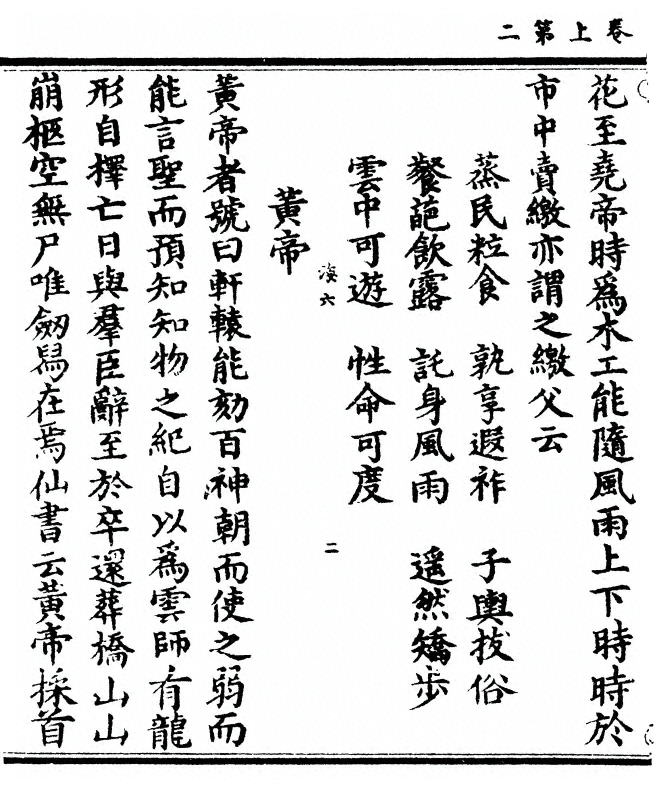 卷上第二
花至堯帝時為木工能隨風雨上下時時於
市中賣繳亦謂之繳父云
蒸民粒食　孰享遐祚　子輿拔俗
餐葩飲露　託身風雨　遥然矯步
雲中可遊　性命可度
湊六
二
黃帝
黃帝者號曰軒轅能劾百神朝而使之弱而
能言聖而預知知物之紀自以為雲師有龍
形自擇亡日與羣臣辭至於卒還葬橋山山
崩柩空無尸唯劔舄在焉仙書云黃帝採首